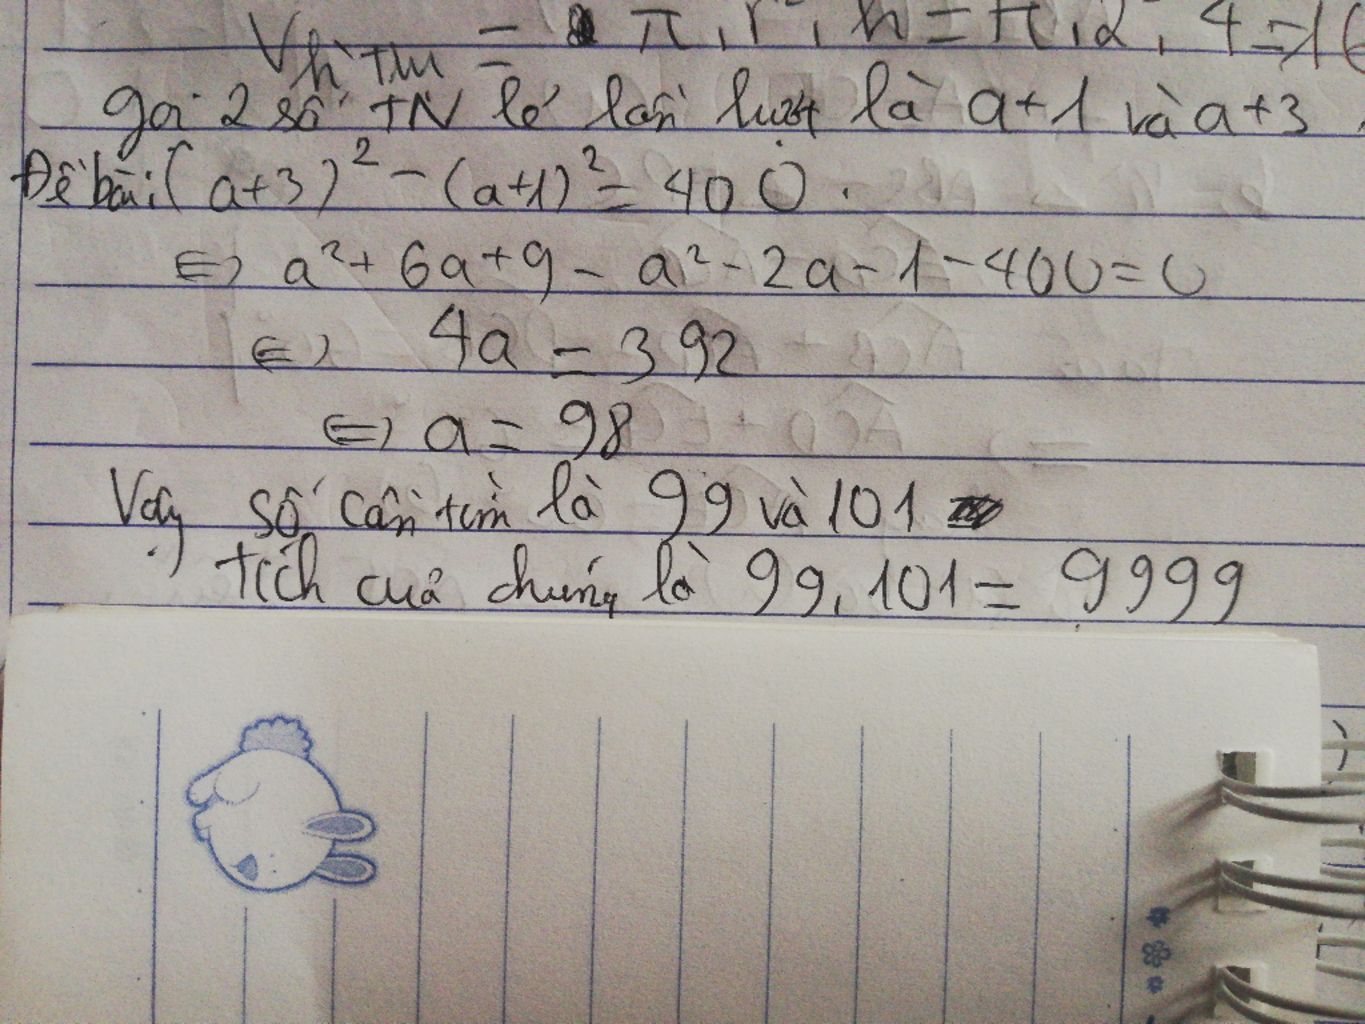 V hì trụ = π.r².h = π.2².4 = 16
gọi 2 số TN lẻ lần lượt là a+1 và a+3.
Đề bài: (a+3)² - (a+1)² = 400.
⇔ a² + 6a + 9 - a² - 2a - 1 - 400 = 0
⇔ 4a = 392
⇔ a = 98
Vậy số cần tìm là 99 và 101
tích của chúng là 99.101 = 9999